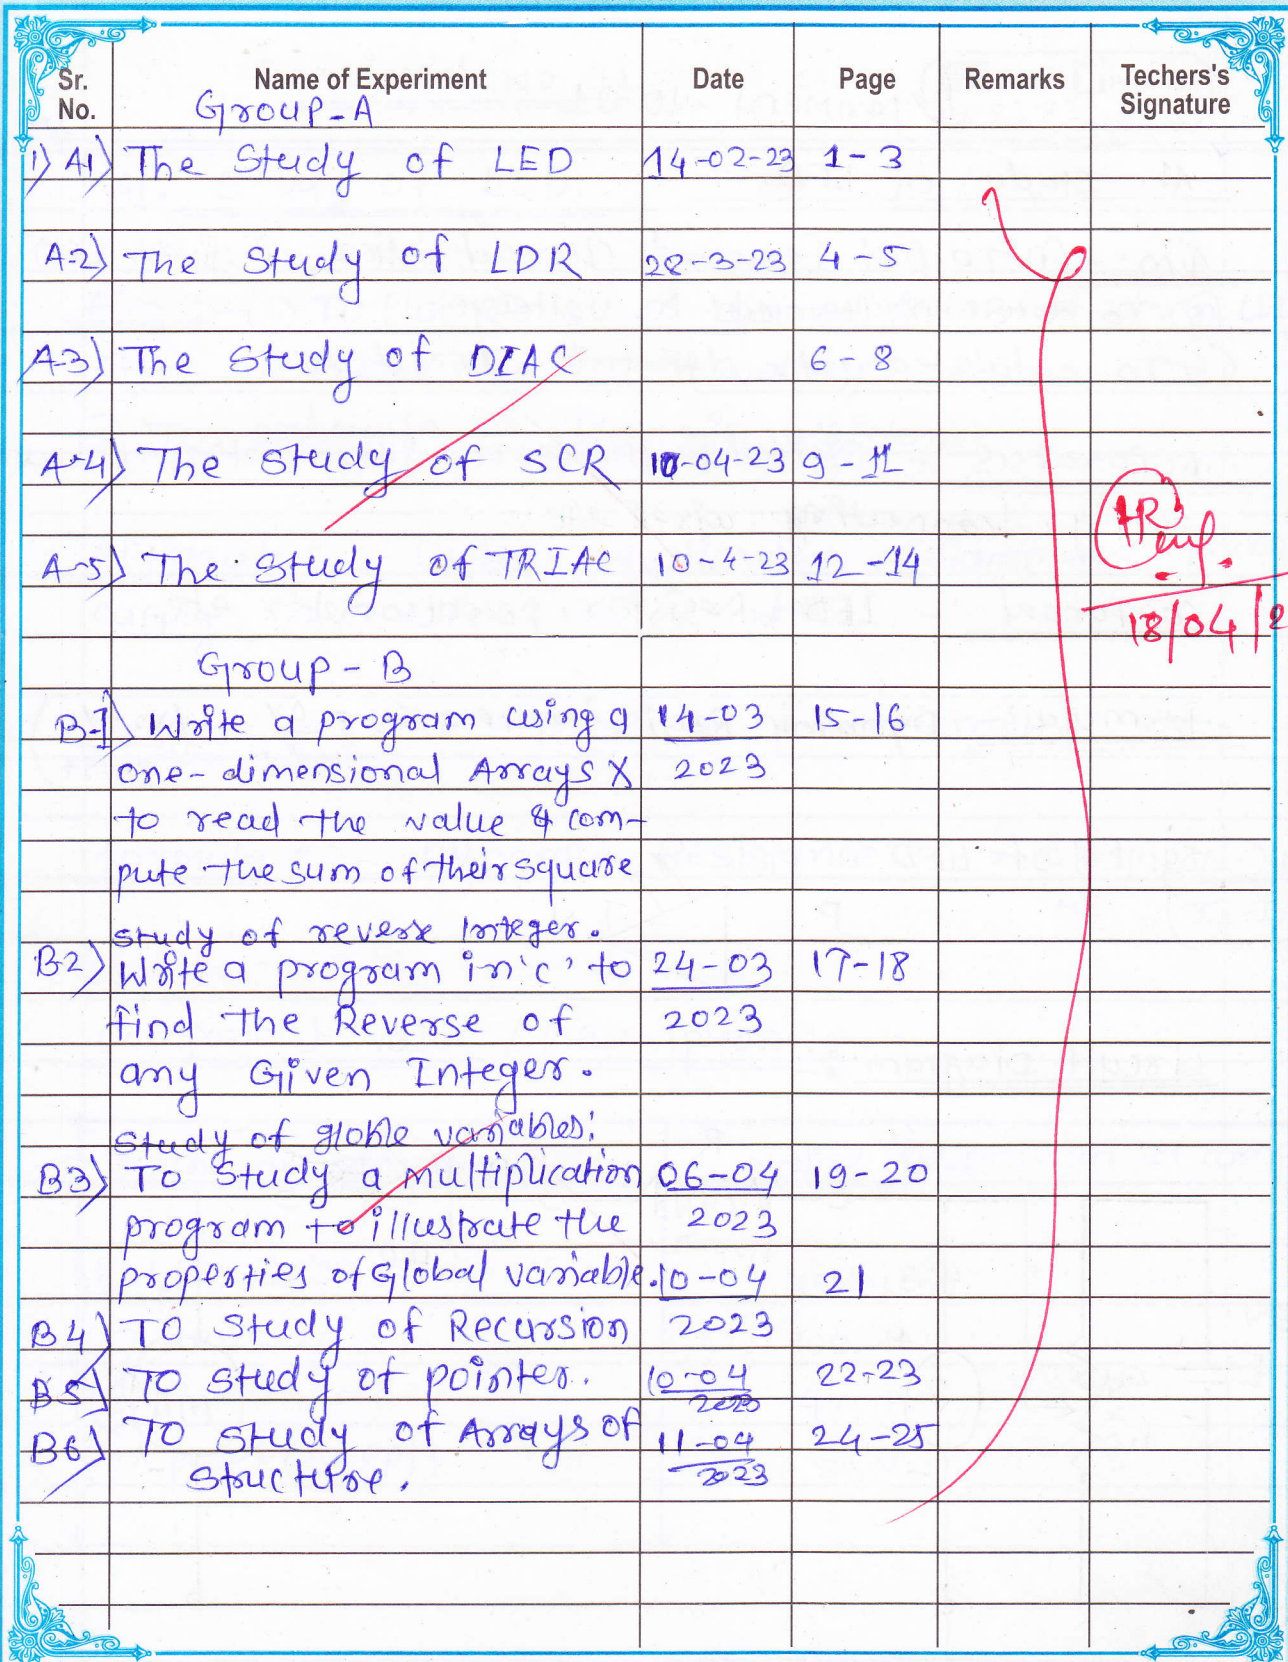 Sr. No. Name of Experiment Date Page Remarks Techers's Signature
Group-A
1) A1) The Study of LED 14-02-23 1-3
A-2) The Study of LDR 28-3-23 4-5
A-3) The Study of DIAC 6-8
A-4) The Study of SCR 10-04-23 9-11
A-5) The Study of TRIAC 10-4-23 12-14
18/04/2
Group-B
B-1) Write a program using a 14-03 15-16
one-dimensional Arrays X 2023
to read the value & com-
pute the sum of their square
study of reverse Integer.
B2) Write a program in 'c' to 24-03 17-18
find the Reverse of 2023
any Given Integer.
Study of globle variables:
B3) To Study a multiplication 06-04 19-20
program to illustrate the 2023
properties of Global variable. 10-04 21
B4) To Study of Recursion 2023
B5) To study of pointer. 10-04 22-23
2023
B6) To study of Arrays of 11-04 24-25
structure. 2023